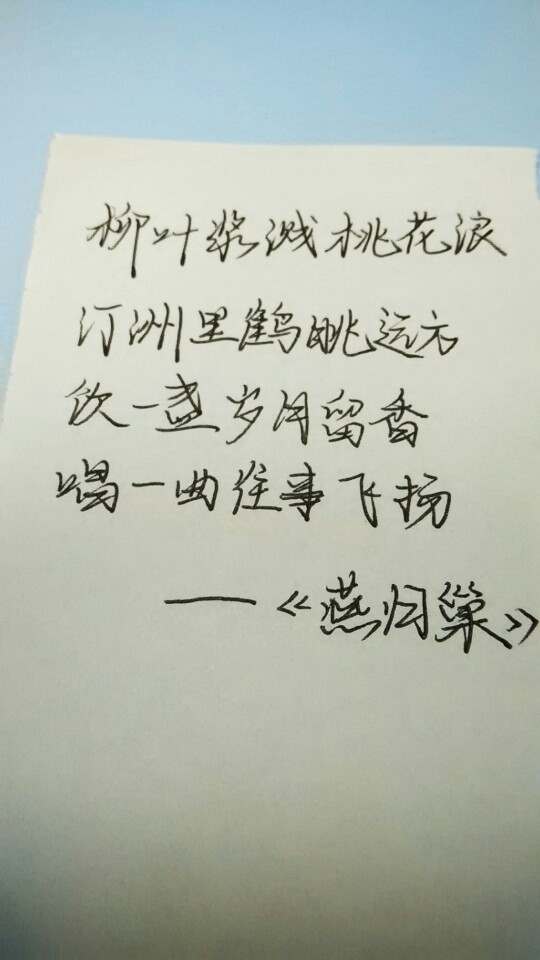 柳叶浆溅桃花浪
汀洲里鹤眺远方
饮一盏岁月留香
唱一曲往事飞扬
——《燕归巢》